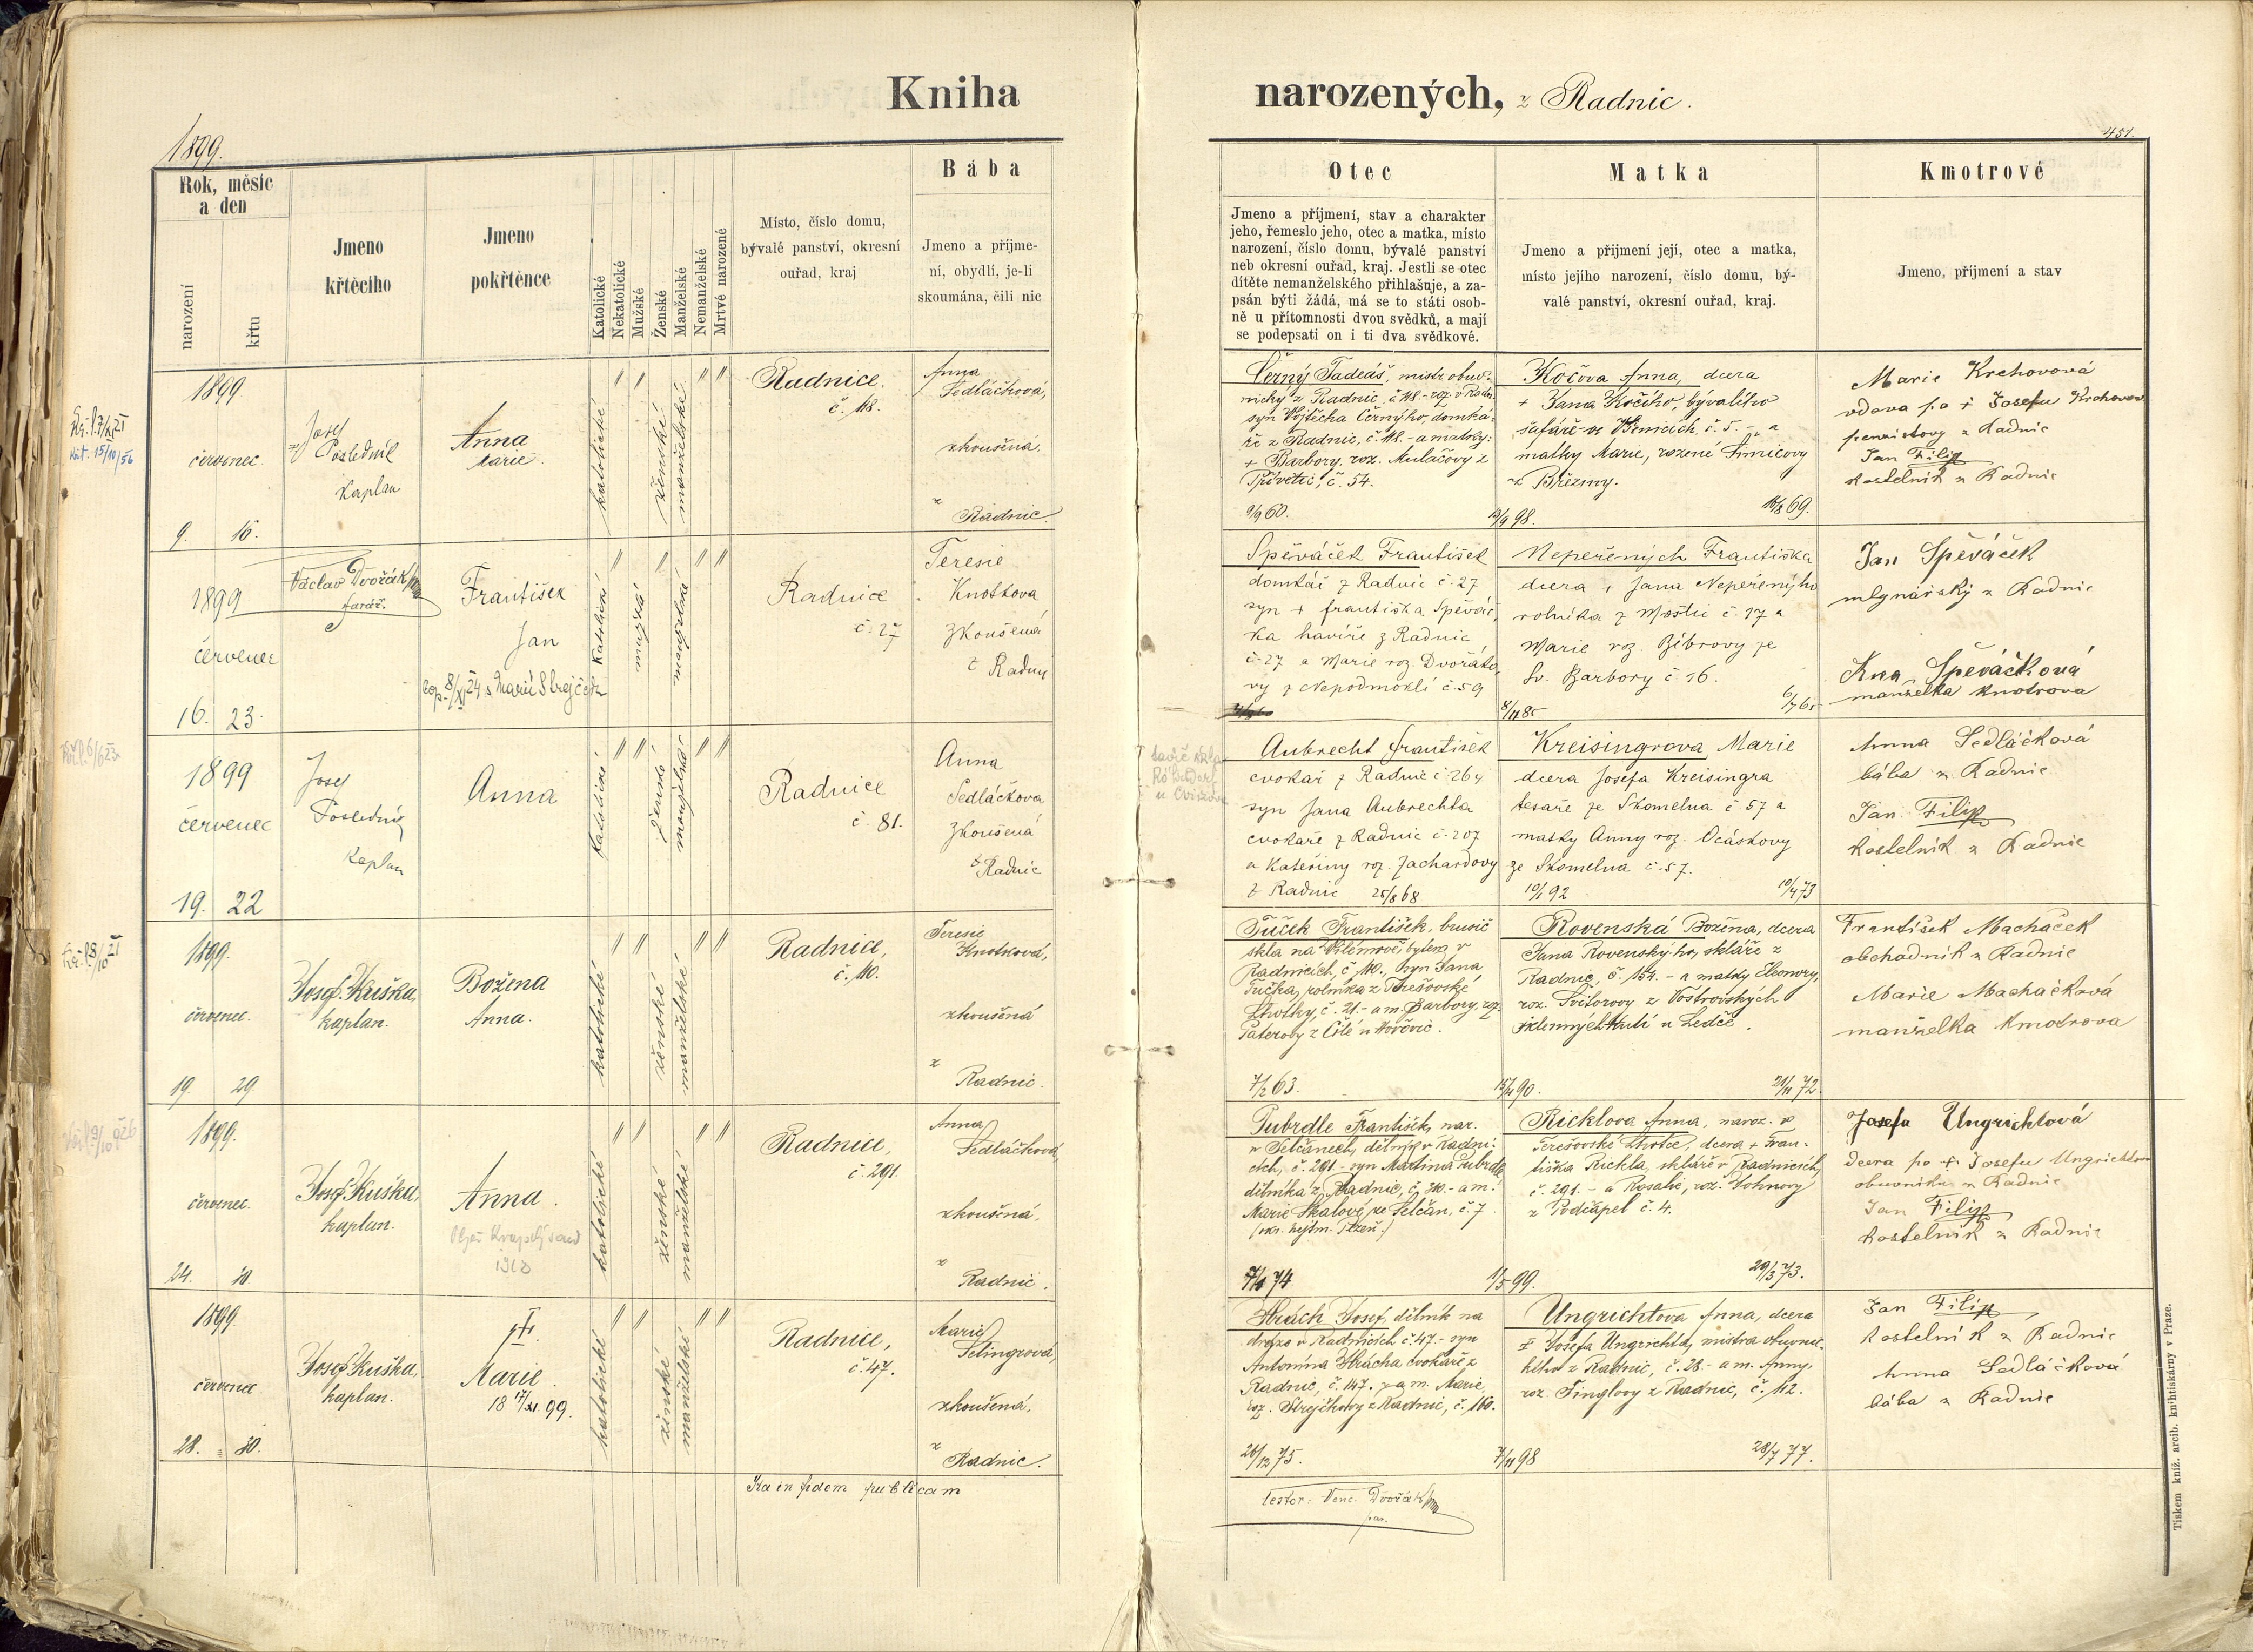 Kniha narozených, z Radnic.
1899.
451.
Rok, měsíc
a den
narození
křtu
Jmeno
křtěcího
Jmeno
pokřtěnce
Katolické
Nekatolické
Mužské
Ženské
Manželské
Nemanželské
Mrtvé narozené
Místo, číslo domu,
bývalé panství, okresní
ouřad, kraj
Bába
Jmeno a příjme-
ní, obydlí, je-li
skoumána, čili nic
Otec
Jmeno a příjmení, stav a charakter
jeho, řemeslo jeho, otec a matka, místo
narození, číslo domu, bývalé panství
neb okresní ouřad, kraj. Jestli se otec
dítěte nemanželského přihlašuje, a za-
psán býti žádá, má se to státi osob-
ně u přítomnosti dvou svědků, a mají
se podepsati on i ti dva svědkové.
Matka
Jmeno a přijmení její, otec a matka,
místo jejího narození, číslo domu, bý-
valé panství, okresní ouřad, kraj.
Kmotrové
Jmeno, příjmení a stav
1899.
červenec.
9. 16.
Josef
Posledník
Kaplan
Anna
Marie.
katolické
ženské
manželské
Radnice.
č. 118.
Anna
Sedláčková,
zkoušená.
z
Radnic.
Černý Tadeáš, mistr obuv-
nický z Radnic, č. 118.- roz. v Radn.
syn Vojtěcha Černýho, domká-
ře z Radnic, č. 118.- a matky:
+ Barbory, roz. Mulačovy z
Přívětic, č. 54.
9/9 60.
Kočova Anna, dcera
+ Jana Kočího, bývalého
šafáře ve Vranicích č. 5. - a
matky Marie, rozené Šimicovy
z Březiny.
13/9 98.
16/8 69.
Marie Krchovová
vdova po + Josefu Krchovovi
penzistovy z Radnic
Jan Filip
kostelník z Radnic
1899
červenec
16. 23.
Václav Dvořák
farář.
František
Jan
cop. 8/XI 24 s Marií Strejček
katolické
mužské
manželské
Radnice
č. 27
Teresie
Knotkova
zkoušená
z Radnic
Spěváček František
domkář z Radnic č. 27
syn + františka Spěváč,
ka havíře z Radnic
č. 27 a Marie roz. Dvořáko,
vy z Nepodmokli č. 59
Nepeřených Františka
dcera + Jana Nepeřenýho
rolníka z Moštic č. 17 a
Marie roz. Bíbrovy ze
Sv. Barbory č. 16.
8/11 85
6/7 65
Jan Spěváček
mlynářský z Radnic
Ana Spěváčková
manželka kmotrova
1899
červenec
19. 22
Josef
Posledník
Kaplan
Anna
katolické
ženské
manželské
Radnice
č. 81.
Anna
Sedláčkova
zkoušená
z Radnic
Aubrecht František
cvokař z Radnic č. 264
syn Jana Aubrechta
cvokaře z Radnic č. 207
a Kateřiny roz. Zachardovy
z Radnic 25/8 68
Kreisingrova Marie
dcera Josefa Kreisingra
tesaře ze Skomelna č. 57 a
matky Anny roz. Ocáskovy
ze Skomelna č. 57.
10/1 92
10/4 73
Anna Sedláčková
bába z Radnic
Jan Filip
kostelník z Radnic
1899.
červenec.
19. 29
Josef Kuška,
kaplan.
Božena
Anna.
katolické
ženské
manželské
Radnice,
č. 110.
Teresie
Knotková,
zkoušená
z
Radnic.
Tuček František, brusič
skla na Vilémově, bytem v
Radnicích, č. 110., syn Jana
Tučka, rolníka z Terešovské
Lhotky, č. 21.- a m. Barbory, roz.
7/2 63.
Rovenská Božena, dcera
Jana Rovenský-ho, skláře z
Radnic, č. 154. - a matky Eleonory,
roz. Svitorovy z Vostrovských
sklenných hutí u Ledče.
15/4 90.
21/11 72.
František Machaček
obchodník z Radnic
Marie Machačková
manželka kmotrova
1899.
červenec.
24. 30
Josef Kuška,
kaplan.
Anna.
katolické
ženské
manželské
Radnice,
č. 291.
Anna
Sedláčková,
zkoušená,
z
Radnic.
Pubrdle František, nar.
v Selčanech, dělník v Radni-
cích, č. 291.- syn Martina Pubrdle
dělníka z Radnic, č. 30.- a m.
Marie Skalové, ze Selčan, č. 7
Ricklova Anna, naroz. v
Terešovské Lhotce, dcera + Fran-
tiška Rickla, skláře v Radnicích,
č. 291. - a Rosalie, roz. Hohnovy
z Podčápel č. 4.
1/5 99.
29/3 73.
Josefa Ungrichtová
dcera po + Josefu Ungrichtovi
obuvníku z Radnic
Jan Filip
kostelník z Radnic
1899.
červenec.
28. 30.
Josef Kuška,
kaplan.
Marie
18 17/XI. 99.
katolické
ženské
manželské
Radnice,
č. 47.
Marie
Selingrová,
zkoušená,
z
Radnic.
Hrách Josef, dělník na
dráze v Radnicích č. 47.- syn
Antonína Hrácha cvokaře z
Radnic, č. 147. - a m. Marie,
roz. Strejčkovy z Radnic, č. 160.
26/12 75.
Ungrichtova Anna, dcera
+ Josefa Ungrichta, mistra obuvnic-
kého z Radnic, č. 28.- a m. Anny,
roz. Finglovy z Radnic, č. 112.
7/11 98
28/7 77.
Jan Filip
kostelník z Radnic
Anna Sedláčková
bába z Radnic
Ita in fidem publicam
testor: Venc. Dvořák
par.
Tiskem kniž. arcib. knihtiskárny v Praze.